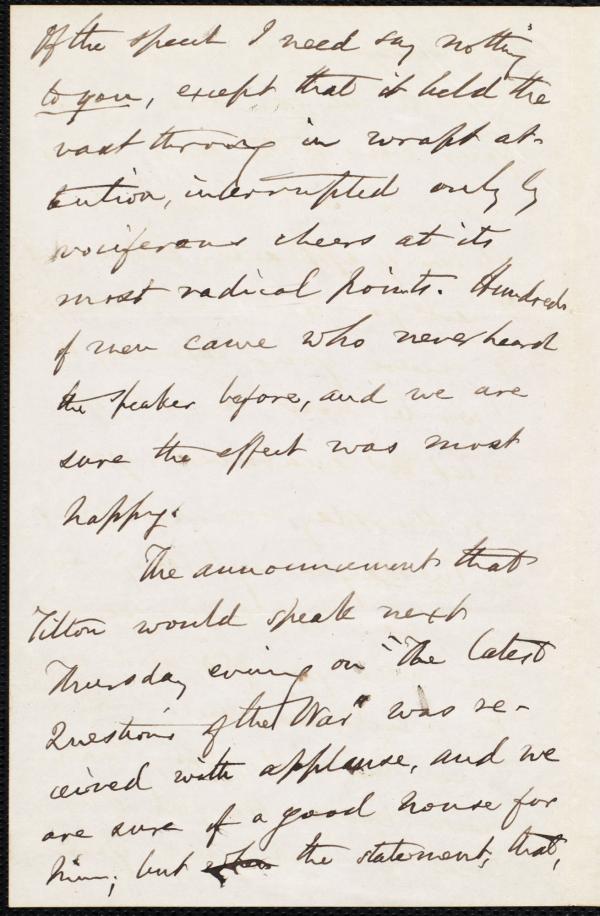 Of the speech I need say nothing
to you, except that it held the
vast throng in wrapt at-
tention, interrupted only by
vociferous cheers at its
most radical points. Hundreds
of men came who never heard
the speaker before, and we are
sure the effect was most
happy.
The announcement that
Tilton would speak next
Thursday evening on "The latest
Questions of the War" was re-
ceived with applause, and we
are sure of a good house for
him; but when the statement, that,